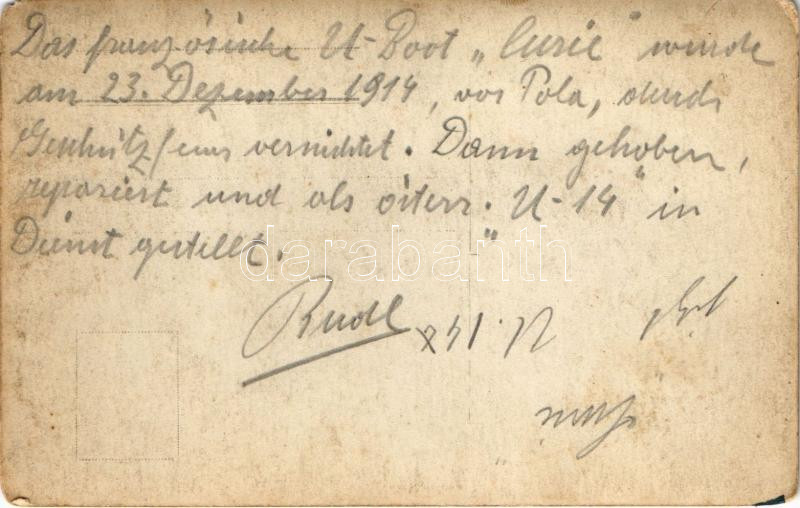 Das französische U-Boot „Curie" wurde
am 23. Dezember 1914, vor Pola, durch
Geschützfeuer vernichtet. Dann gehoben,
repariert und als österr. „U-14" in
Dienst gestellt.
darabanth
Rudl